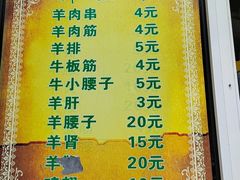 羊肉串 4元
羊肉筋 4元
羊排 5元
牛板筋 4元
牛小腰子 5元
羊肝 3元
羊腰子 20元
羊肾 15元
羊 20元